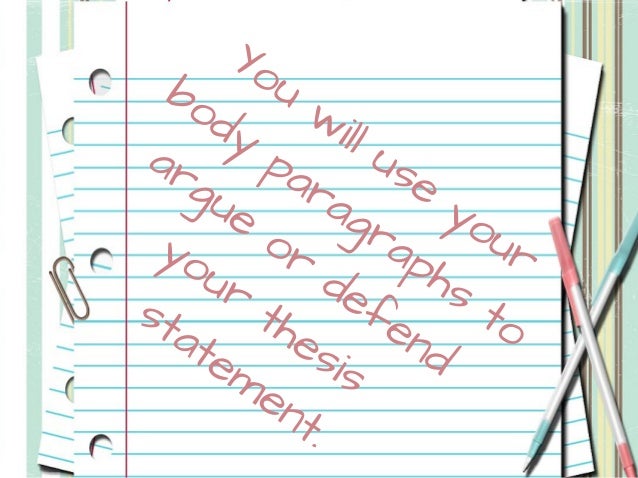 You will use your
body paragraphs to
argue or defend
your thesis
statement.